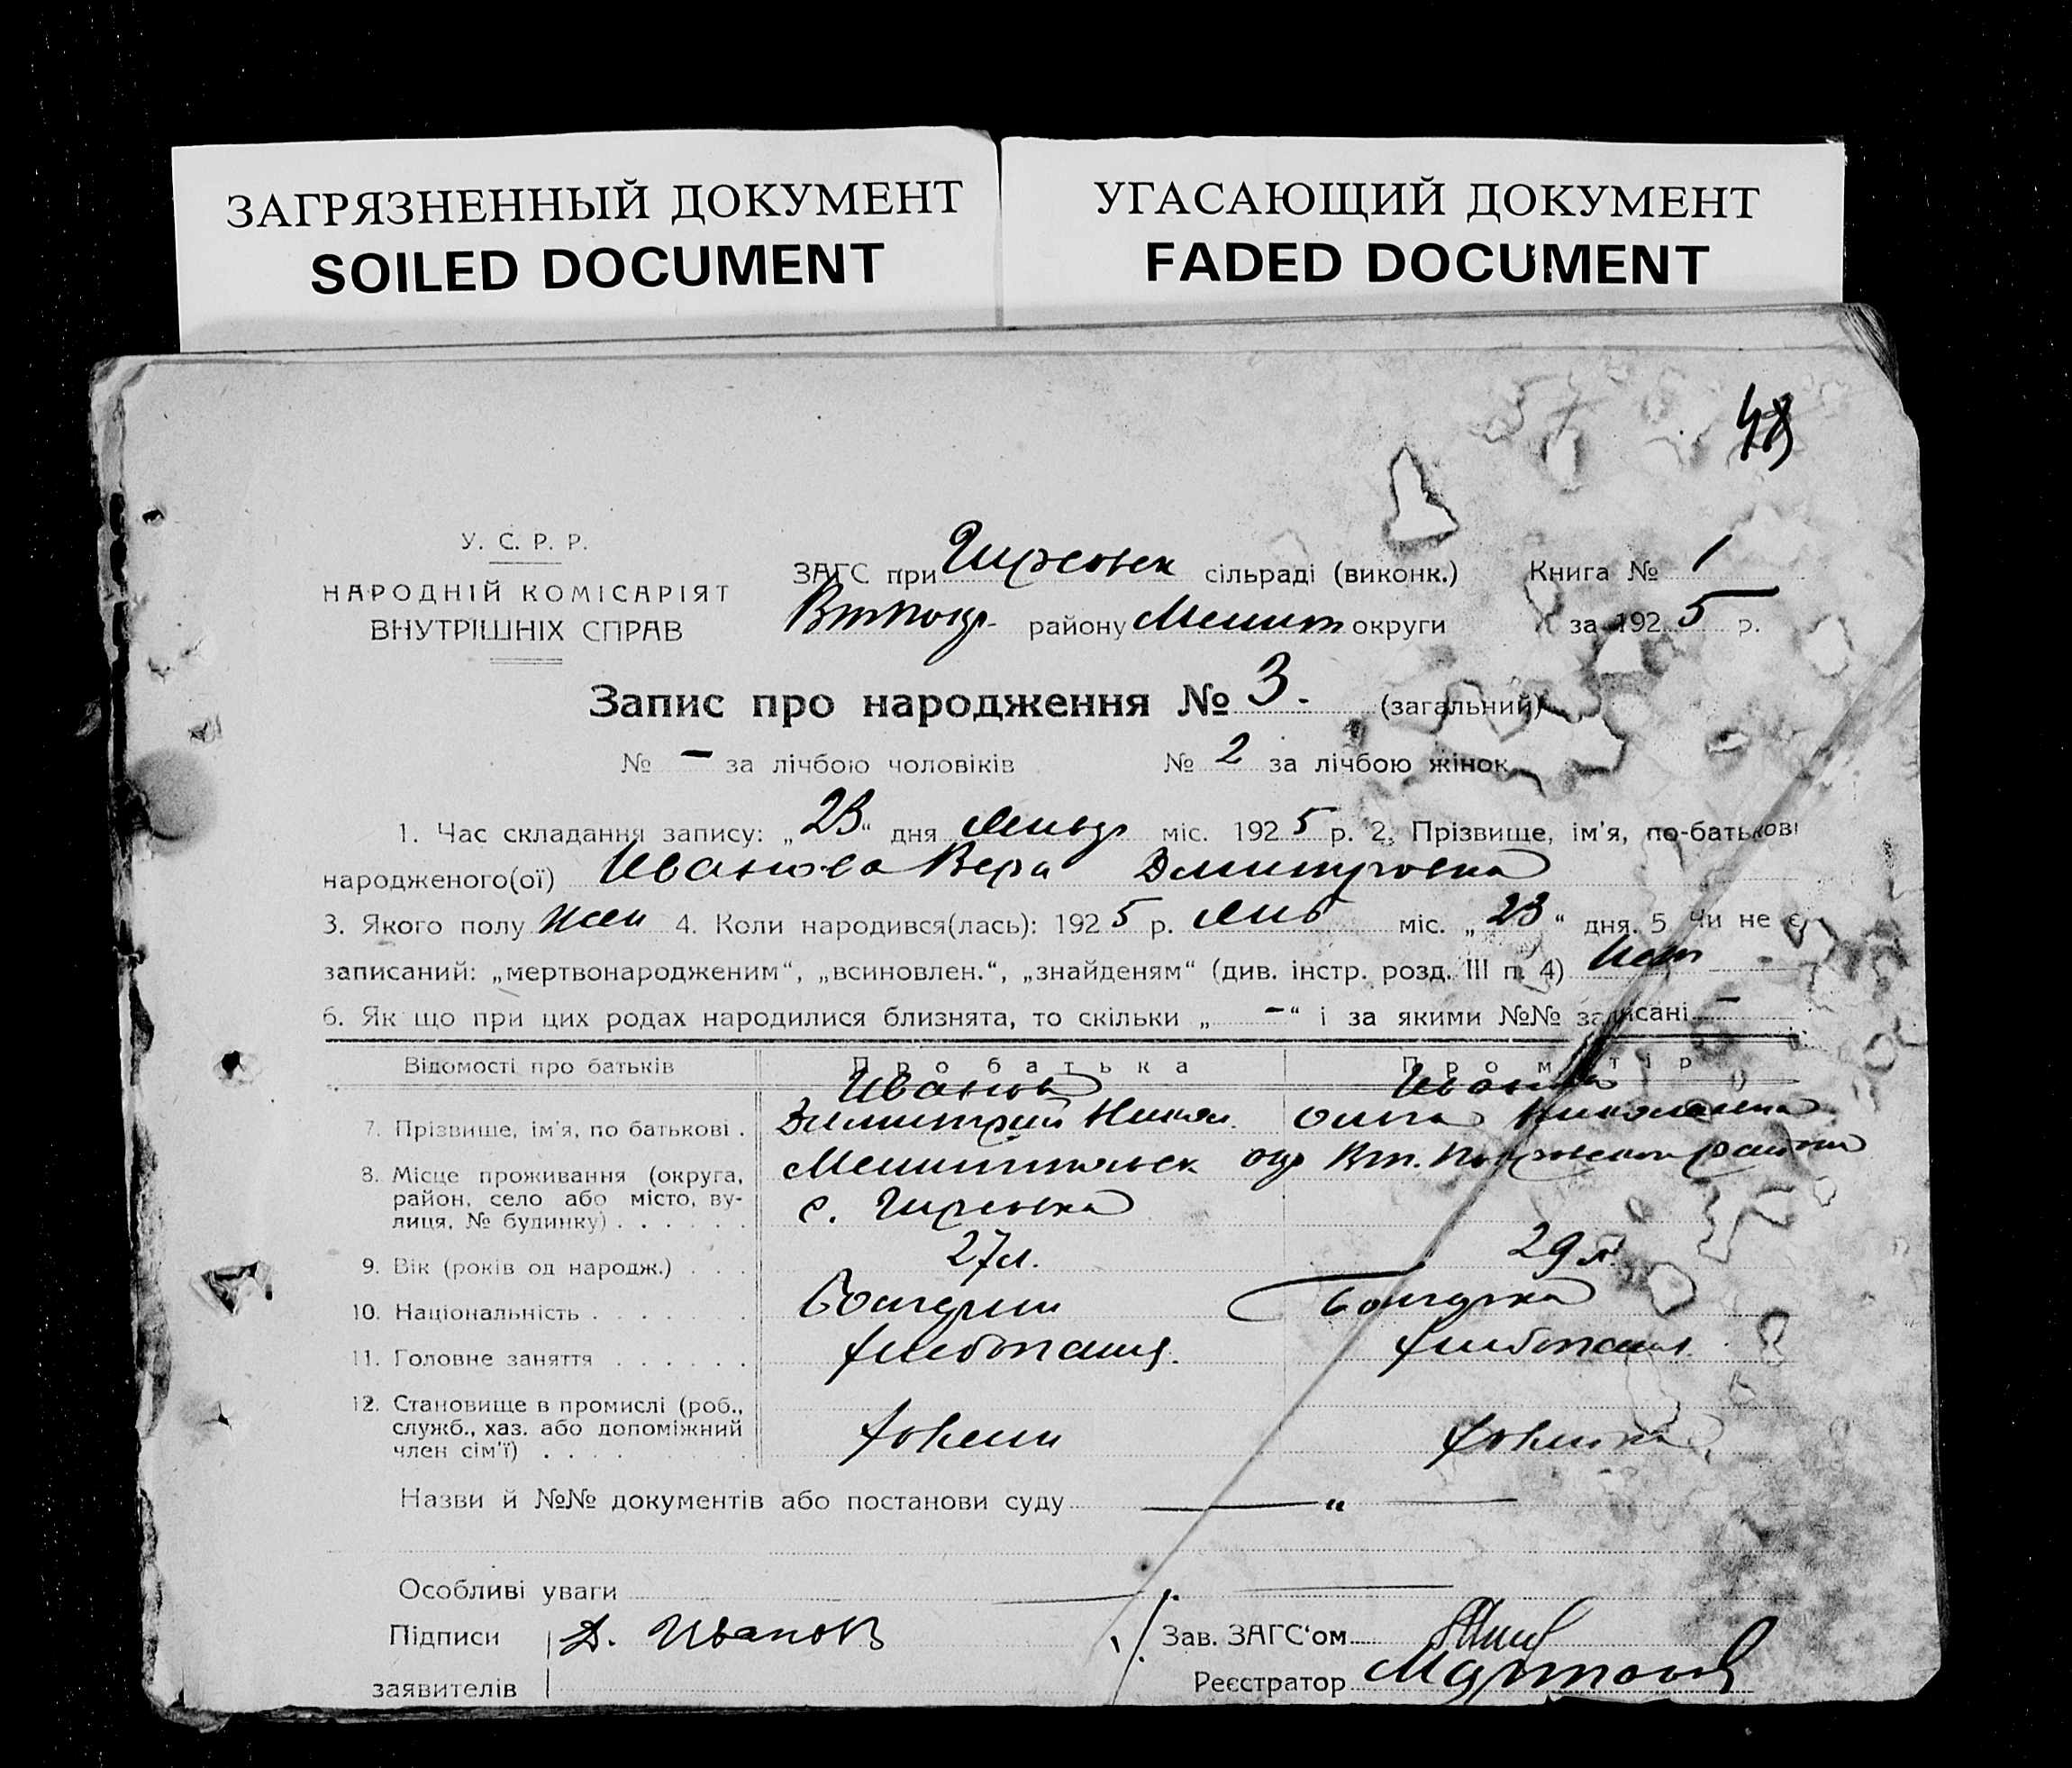 ЗАГРЯЗНЕННЫЙ ДОКУМЕНТ
SOILED DOCUMENT
УГАСАЮЩИЙ ДОКУМЕНТ
FADED DOCUMENT
У. С. Р. Р.
НАРОДНІЙ КОМІСАРІЯТ
ВНУТРІШНІХ СПРАВ
ЗАГС при Гирсовск сільраді (виконк.)
району Мелит округи
Книга № 1
за 1925 р.
Запис про народження № 3. (загальний)
№ — за лічбою чоловіків № 2 за лічбою жінок
1. Час складання запису: „23“ дня міс. 1925 р. 2. Прізвище, ім'я, по-батькові
народженого(ої) Иванова Вера Дмитровна
3. Якого полу жен 4. Коли народився(лась): 1925 р. Янв міс. „23“ дня. 5 Чи не є
записаний: „мертвонародженим“, „всиновлен.“, „знайденям“ (див. інстр. розд. III п. 4) Нет
6. Як що при цих родах народилися близнята, то скільки „ —“ і за якими №№ записані —
Відомості про батьків Про батька Про матір
7. Прізвище, ім'я, по батькові . Иванов Димитрий Никол. Иванова Ольга Николаевна
8. Місце проживання (округа,
район, село або місто, ву-
лиця, № будинку) . . . . . .
Мелитопольск окр Вт. Покровском района
с. Гирсовка
9. Вік (років од народж.) . . . 27 л. 29 л.
10. Національність . . . . . . . Болгарин Болгарка
11. Головне заняття . . . . . . хлебопашц. хлебопаш.
12. Становище в промислі (роб.,
служб., хаз. або допоміжний
член сім'ї) . . . .
Хозяин Хозяйка
Назви й №№ документів або постанови суду — “ —
Особливі уваги
Підписи
заявителів
Д. Иванов
Зав. ЗАГС‘ом
Реєстратор